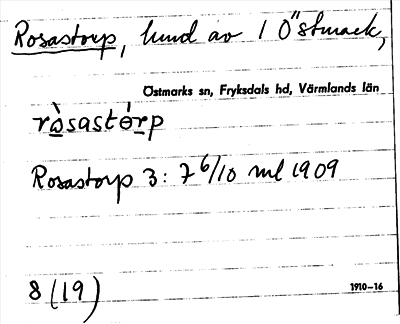 Rosastorp, hund av 1 Östmark,
Östmarks sn, Fryksdals hd, Värmlands län
ròsastórp
Rosastorp 3: 7 6/10 ml 1909
8 (19)
1910–16